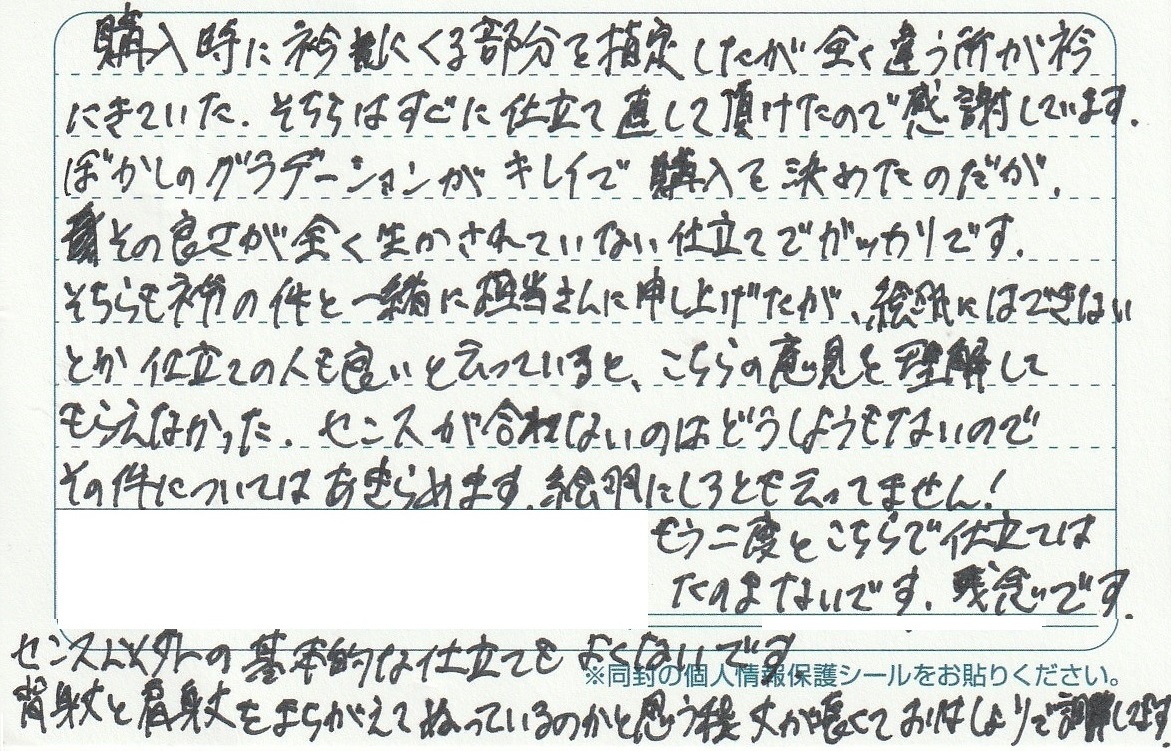 購入時に衿にくる部分を指定したが全く違う所が衿
にきていた.そちらはすぐに仕立て直して頂けたので感謝しています.
ぼかしのグラデーションがキレイで購入を決めたのだが、
その良さが全く生かされていない仕立てでガッカリです.
そちらも衿の件と一緒に担当さんに申し上げたが、絵羽にはできない
とか仕立ての人も良いと云っていると、こちらの意見を理解して
もらえなかった.センスが合わないのはどうしようもないので
その件についてはあきらめます.絵羽にしろとも云ってません!
もう二度とこちらで仕立ては
たのまないです.残念です.
センス以外の基本的な仕立てもよくないです.
※同封の個人情報保護シールをお貼りください。
背身丈と肩身丈をまちがえてぬっているのかと思う程丈が長くておはしょりで調整してます